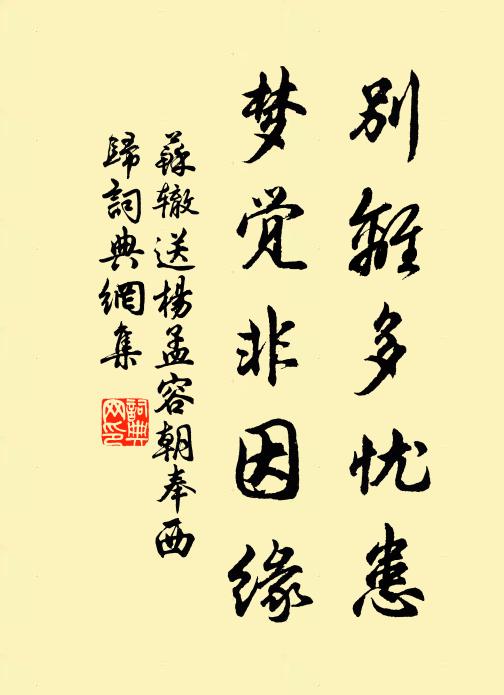 别離多忧患
梦觉非因缘
蘇辙送楊孟容朝奉西
歸詞典網集
詞典
网印